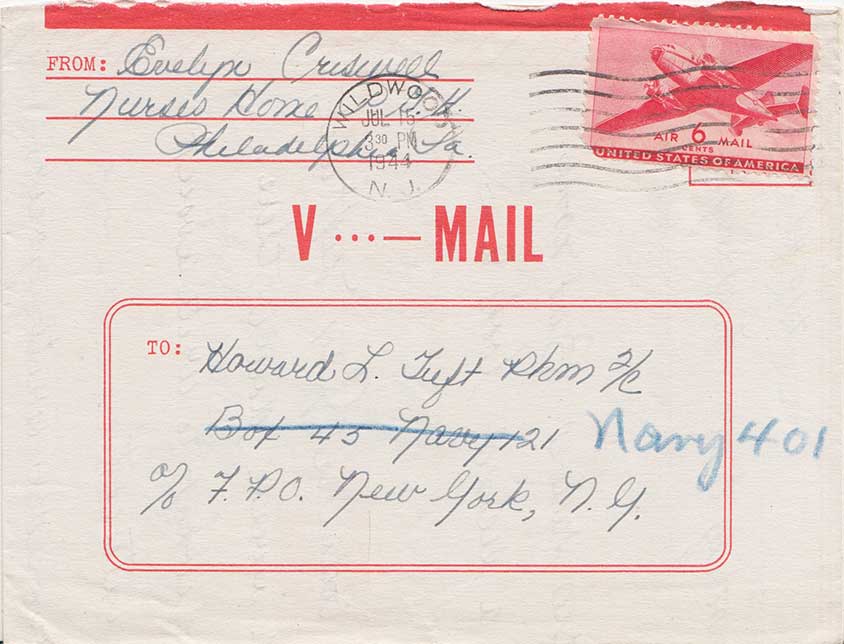 FROM: Evelyn Criswell
Nurses Home
Philadelphia Pa.
WILDWOOD
JUL 15
3 30 PM
1944
N. J.
AIR 6 MAIL
CENTS
UNITED STATES OF AMERICA
V ···— MAIL
TO: Howard L. Tuft Phm 2/c
Box 45 Navy 121 Navy 401
c/o F.P.O. New York, N.Y.